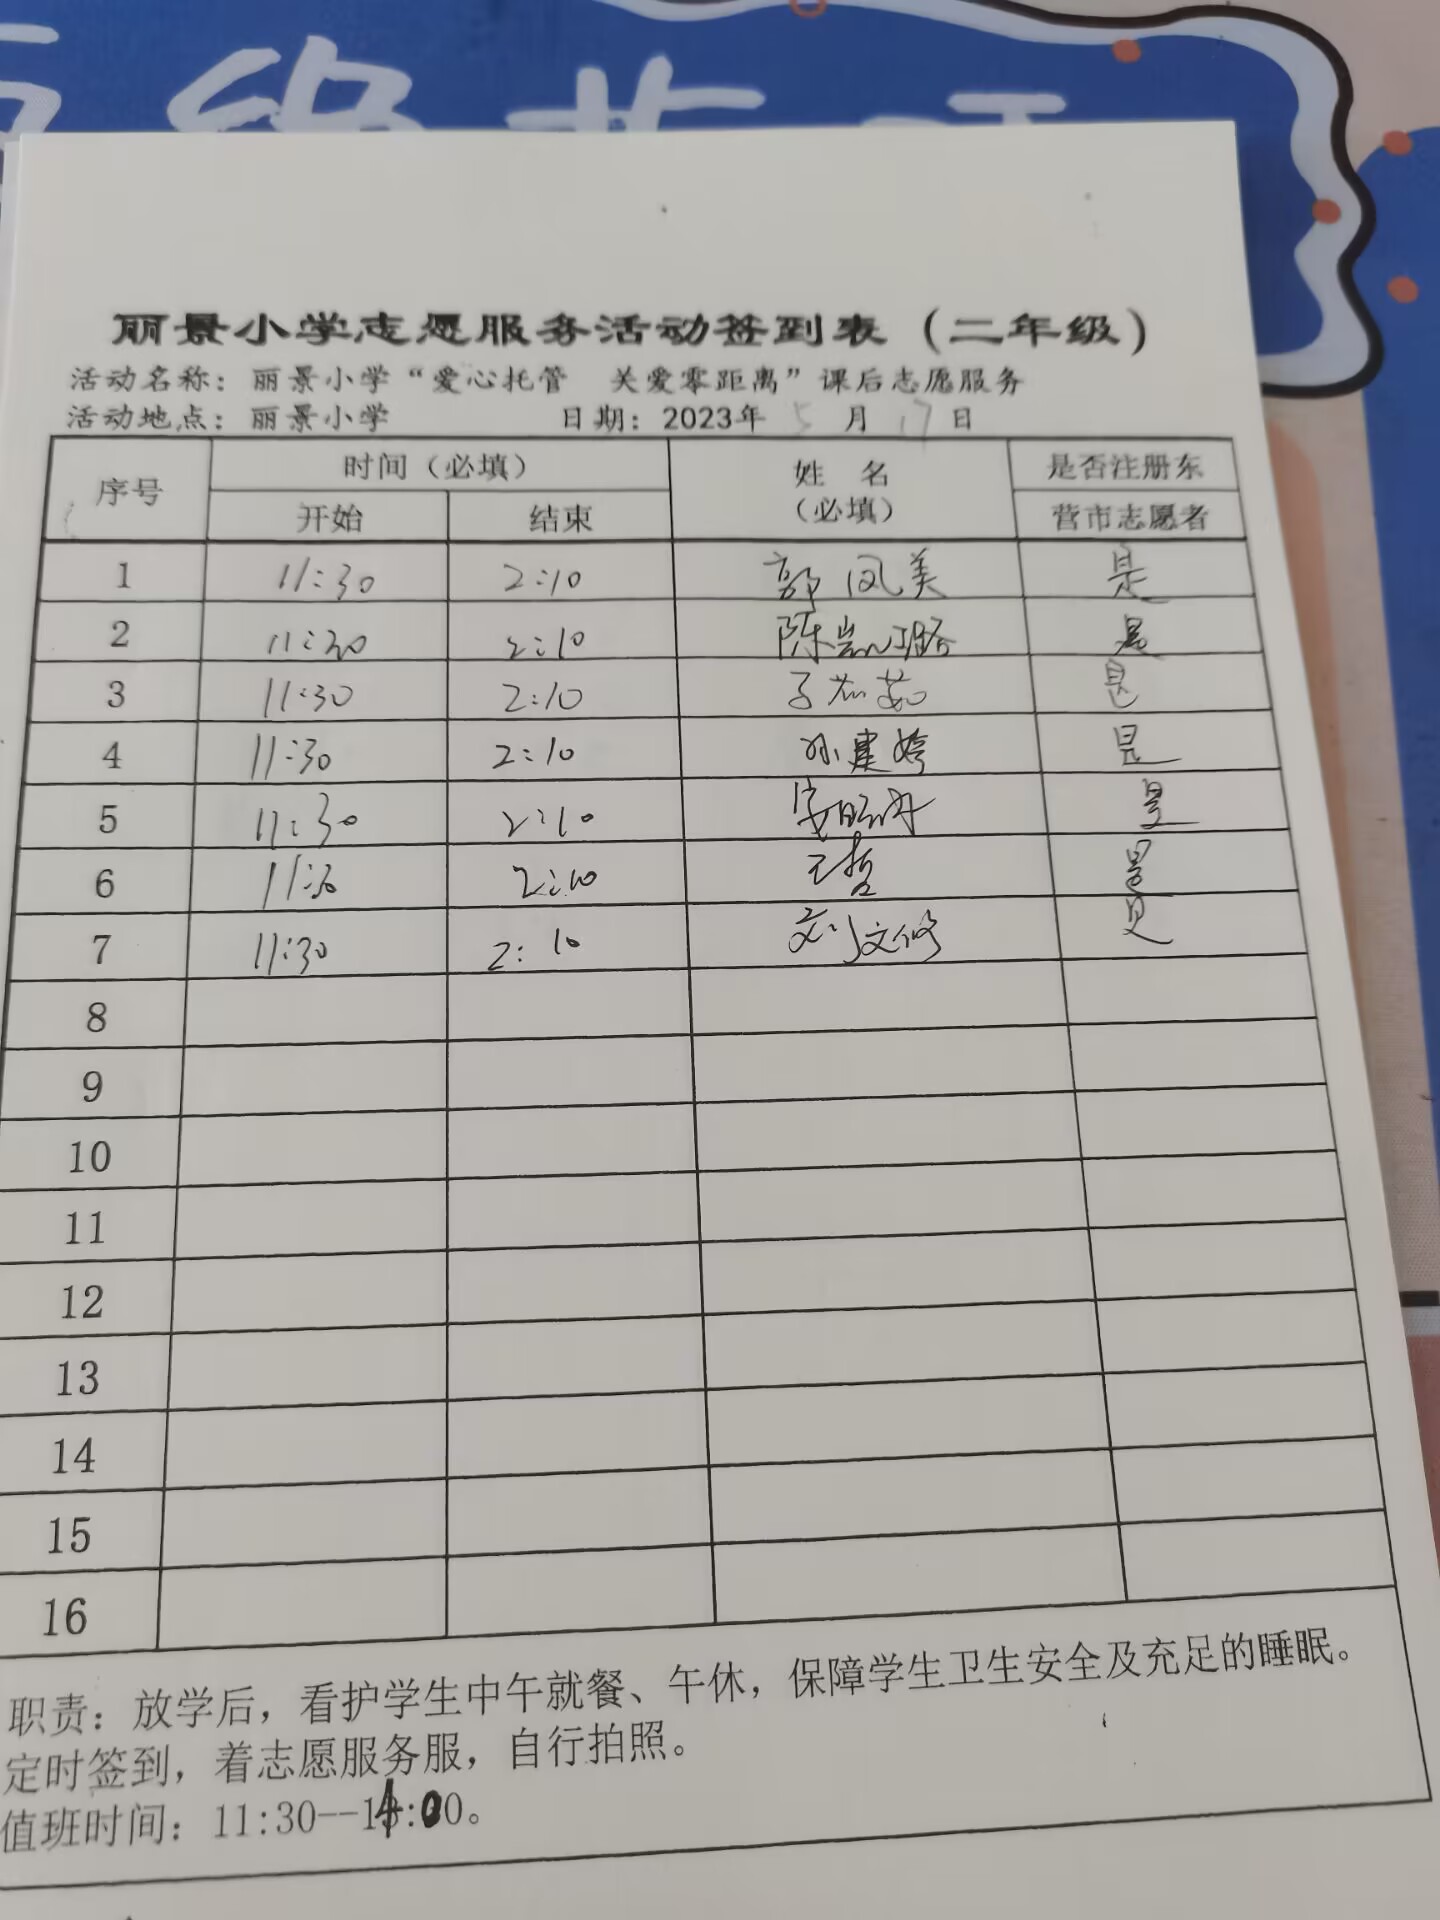 丽景小学志愿服务活动签到表（二年级）
活动名称：丽景小学“爱心托管 关爱零距离”课后志愿服务
活动地点：丽景小学 日期：2023年 5 月 17 日
序号 时间（必填） 姓 名 是否注册东
开始 结束 （必填） 营市志愿者
1 11:30 2:10 郭凤美 是
2 11:30 2:10 陈岚璐 是
3 11:30 2:10 是
4 11:30 2:10 孙建婷 是
5 11:30 2:10 是
6 11:30 2:10 王哲 是
7 11:30 2:10 刘文修 是
8
9
10
11
12
13
14
15
16
职责：放学后，看护学生中午就餐、午休，保障学生卫生安全及充足的睡眠。
定时签到，着志愿服务服，自行拍照。
值班时间：11:30--14:00。